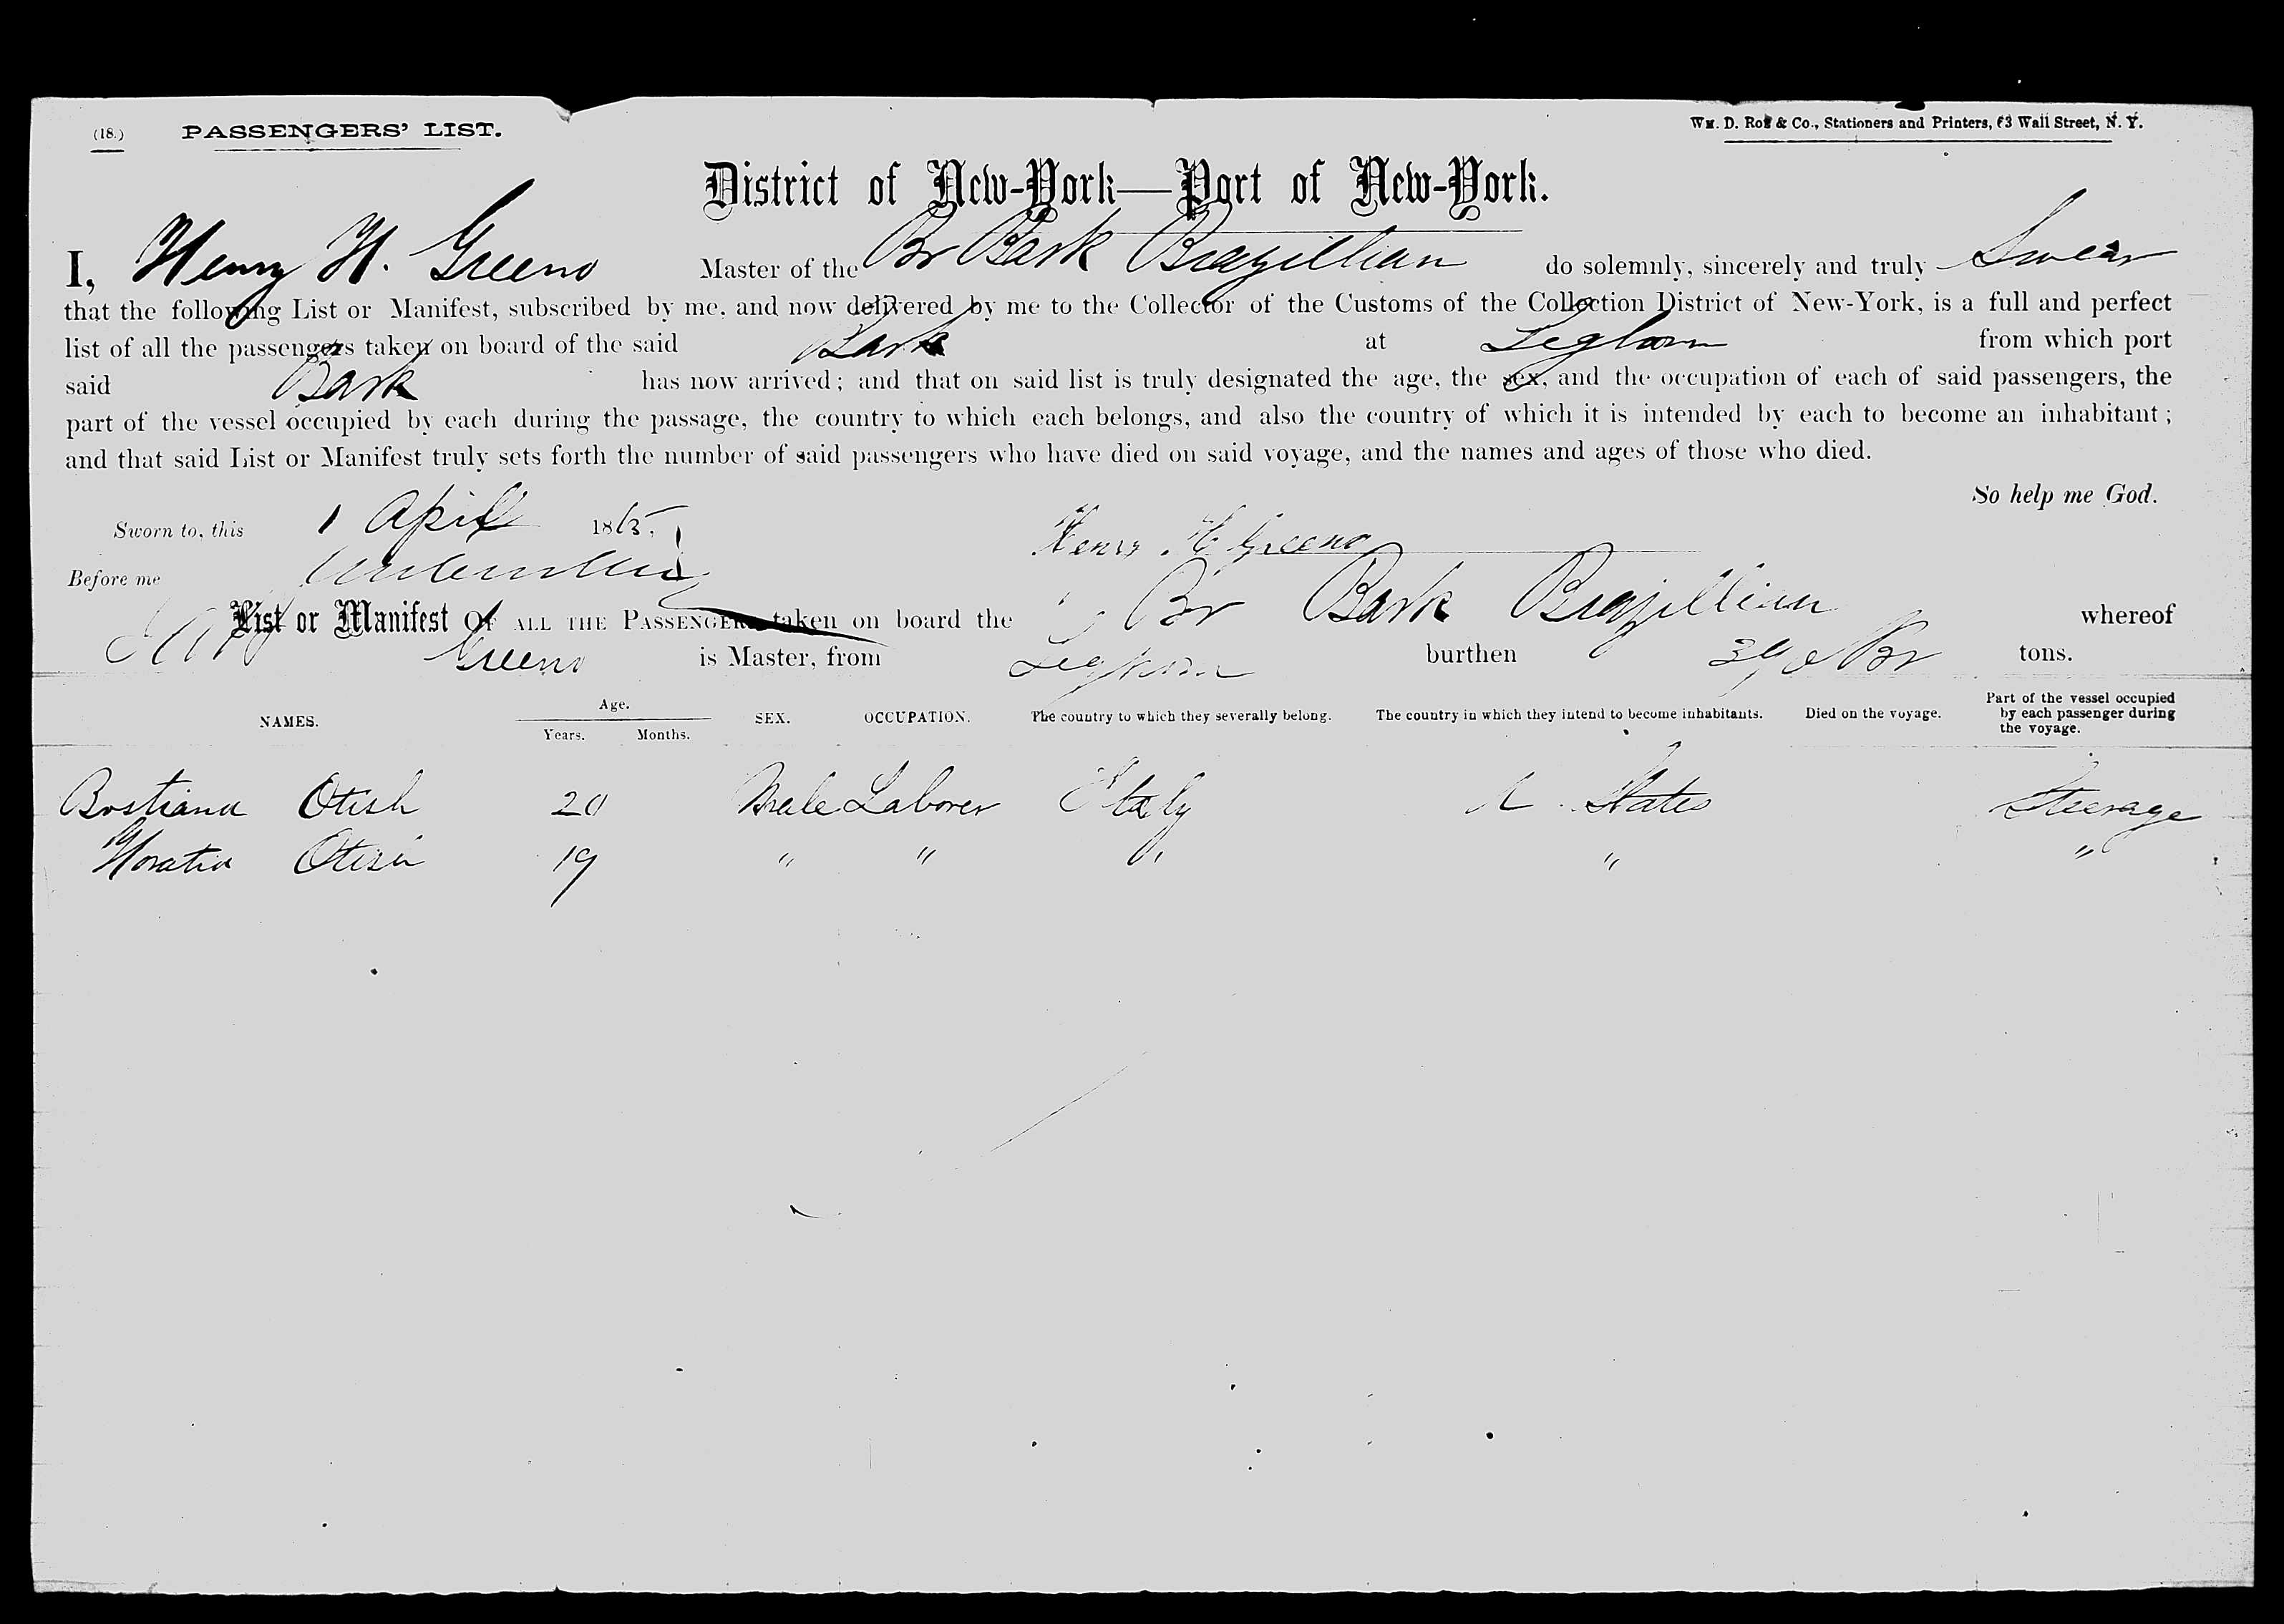 (18.) PASSENGERS' LIST. Wm. D. Roe & Co., Stationers and Printers, 63 Wall Street, N. Y.
District of New-York—Port of New-York.
I, Henry H. Greeno Master of the Br Bark Brazillian do solemnly, sincerely and truly Swear
that the following List or Manifest, subscribed by me, and now delivered by me to the Collector of the Customs of the Collection District of New-York, is a full and perfect
list of all the passengers taken on board of the said Bark at Leghorn from which port
said Bark has now arrived; and that on said list is truly designated the age, the sex, and the occupation of each of said passengers, the
part of the vessel occupied by each during the passage, the country to which each belongs, and also the country of which it is intended by each to become an inhabitant;
and that said List or Manifest truly sets forth the number of said passengers who have died on said voyage, and the names and ages of those who died.
So help me God.
Sworn to, this 1 April 1865. Henry H Greeno
Before me
List or Manifest OF ALL THE PASSENGERS taken on board the Br Bark Brazillian whereof
Greeno is Master, from Leghorn burthen Br tons.
NAMES. Age. Years. Months. SEX. OCCUPATION. The country to which they severally belong. The country in which they intend to become inhabitants. Died on the voyage. Part of the vessel occupied by each passenger during the voyage.
Bostiana Otish 20 Male Laborer Italy States Steerage
Horatio 19 " " " " "